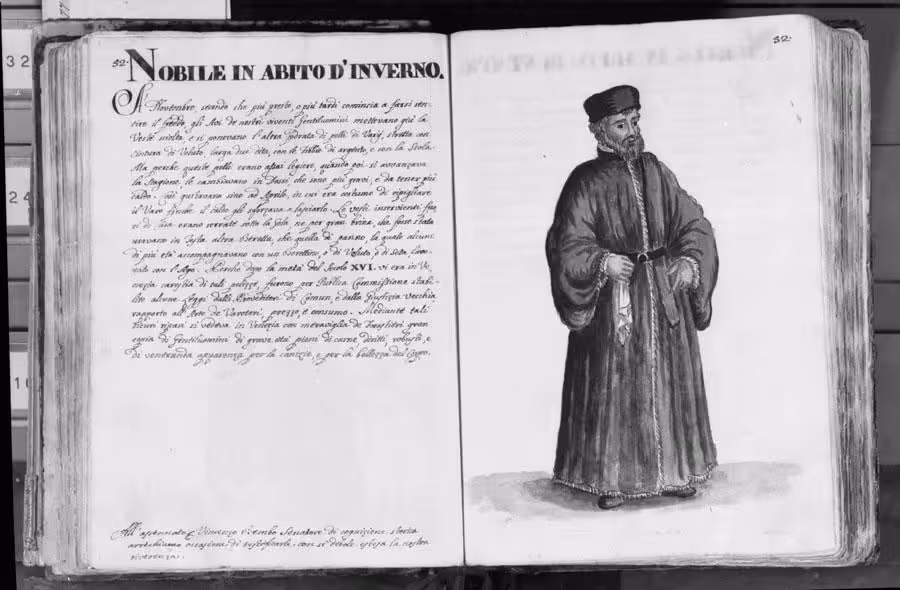 32
24
52.
NOBILE IN ABITO D'INVERNO.
Al Novembre, secondo che più presto, o più tardi comincia a farsi sen=
tire il freddo, gli Avi de nostri viventi Gentiluomini mettevano giù la
Veste sciolta, e si ponevano l'altra fodrata di pelli di Varj, stretta con
cintura di Veluto, larga due dita, con le fibbie di argento, e con la Stola.
Ma perche queste pelli erano assai legiere, quando poi si avvanzava
la Stagione, le cambiavano in Dossi, che sono più gravi, e da tener più
caldo. Così
sino ad Aprile, in cui era costume di ripigliare
il Varo finche il caldo gli sforzava a lasciarlo. Le vesti
erano serrate sotto la gola ne per gran brina, che fosse stata
usavano in testa altra Beretta, che quella di panno, la quale alcuni
di più età accompagnavano con un Berettino, o di Veluto, o di Seta lavo=
rati con l'Ago. Perche dopo la metà del Secolo XVI. vi era in Ve=
nezia carestia di tali pelizze, furono per Publica Commissione stabi=
lite alcune Leggi dalli Proveditori di Comun, e dalla Giustizia Vecchia
rapporto all'Arte de Varoteri, prezzo, e consumo. Mediante tali
sicuri ripari si vedeva in Venezia con meraviglia de Forastieri gran
copia di Gentiluomini di grave età, pieni di carne, diritti, robusti, e
di veneranda apparenza per la canizie, e per la bellezza del Corpo.
All'assennato
Vincenzo Bembo Senatore di cognizione, storica
arrechiamo occasione di
con sì debole
la nostra
riverenza.
52.